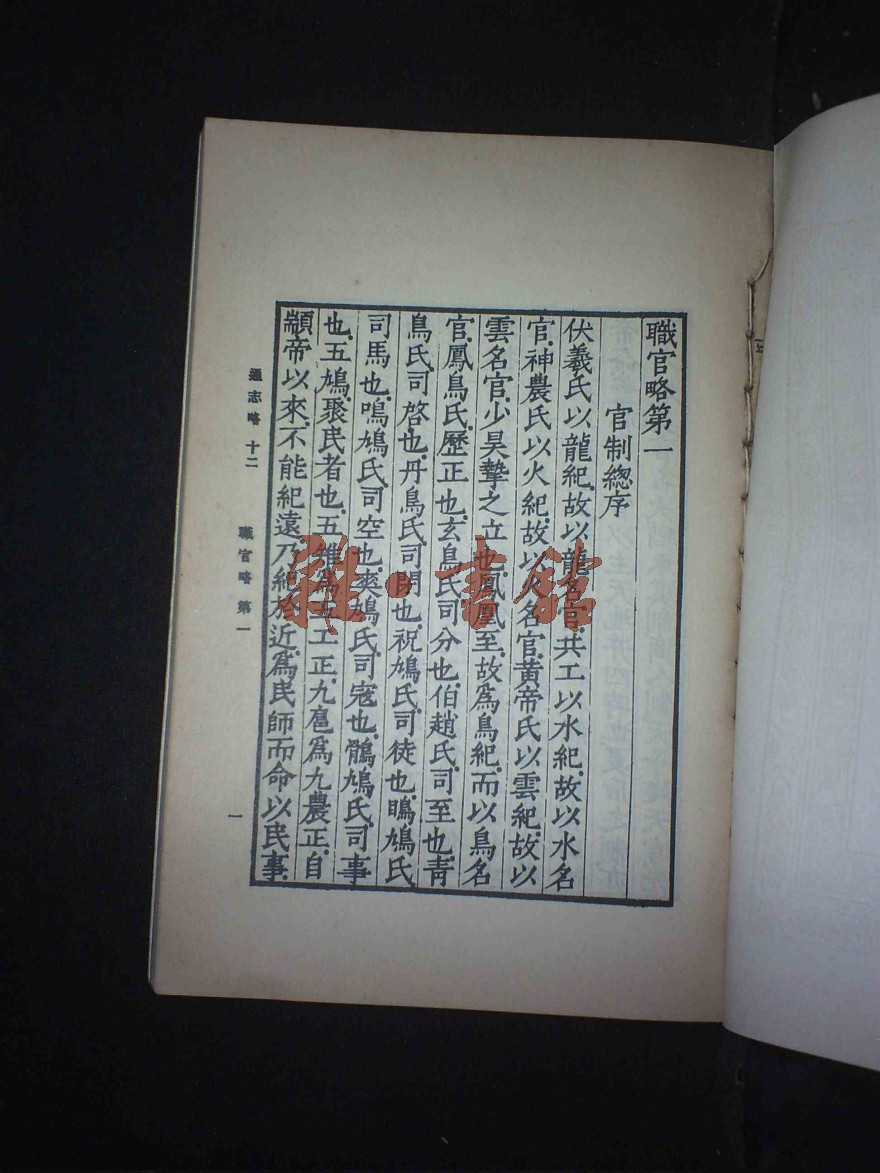 職官略第一
官制總序
伏羲氏以龍紀.故以龍名官.共工以水紀.故以水名
官.神農氏以火紀.故以火名官.黄帝氏以雲紀.故以
雲名官.少昊摯之立也.鳳凰至.故爲鳥紀.而以鳥名
官.鳳鳥氏歷正也.玄鳥氏司分也.伯趙氏司至也.青
鳥氏司啓也.丹鳥氏司閉也.祝鳩氏司徒也.鴡鳩氏
司馬也.鳲鳩氏司空也.爽鳩氏司寇也.鶻鳩氏司事
也.五鳩.聚民者也.五雉爲五工正.九扈爲九農正.自
顓帝以來.不能紀遠.乃紀於近.爲民師而命以民事.
通志略 十二 職官略 第一
一
雜·書館